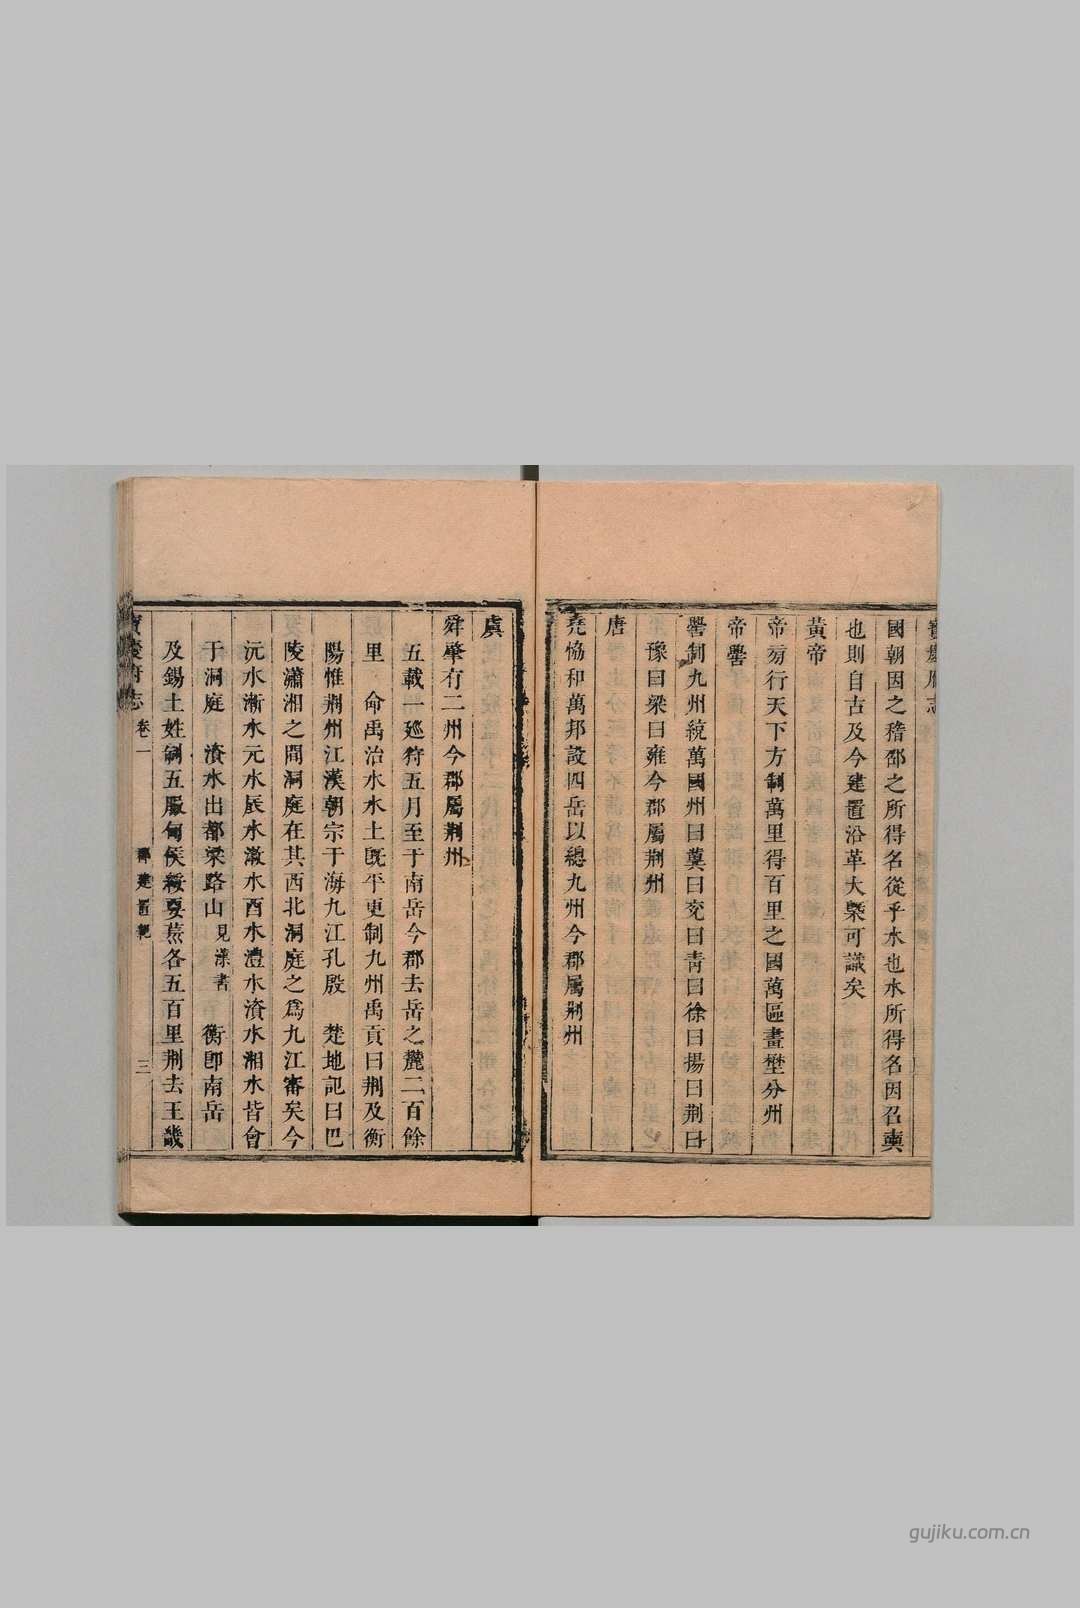 寶慶府志
國朝因之稽邵之所得名從乎水也水所得名因召
也則自古及今建置沿革大槩可識矣
黃帝
帝旁行天下方制萬里得百里之國萬區畫埜分州
帝嚳
嚳制九州統萬國州曰冀曰兗曰青曰徐曰揚曰荆曰
豫曰梁曰雍今郡屬荆州
唐
堯協和萬邦設四岳以總九州今郡屬荆州
虞
舜肇有二州今郡屬荆州
五載一廵狩五月至于南岳今郡去岳之麓二百餘
里 命禹治水水土既平更制九州禹貢曰荆及衡
陽惟荆州江漢朝宗于海九江孔殷 楚地記曰巴
陵瀟湘之間洞庭在其西北洞庭之爲九江審矣今
沅水漸水元水辰水漵水酉水澧水資水湘水皆會
于洞庭 資水出都梁路山見漢書 衡卽南岳
及錫土姓制五服甸侯綏要荒各五百里荆去王畿
寶慶府志 卷一 郡建置紀 三
gujiku.com.cn